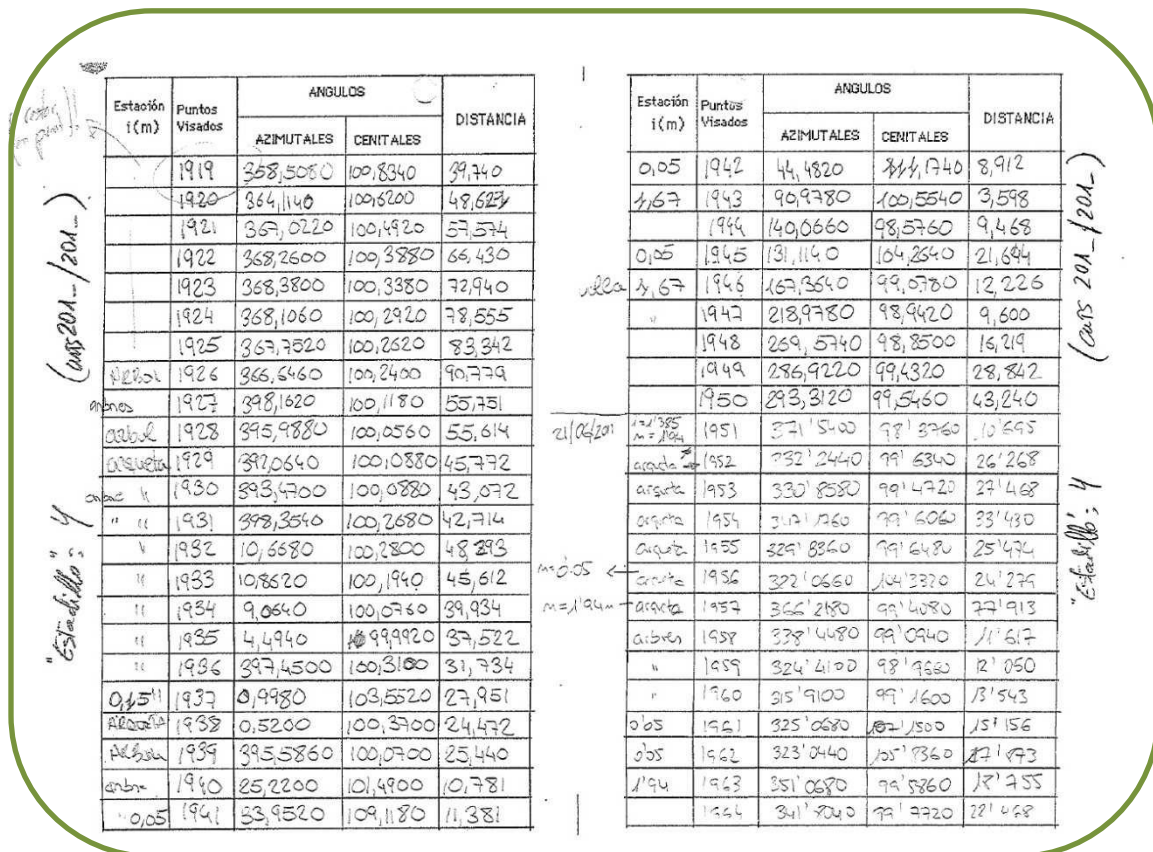 Estación i(m) Puntos Visados ANGULOS AZIMUTALES CENITALES DISTANCIA
1919 358,5080 100,8340 39,740
1920 364,1140 100,6200 48,627
1921 367,0220 100,4920 57,574
1922 368,2600 100,3880 66,430
1923 368,3800 100,3380 72,940
1924 368,1060 100,2920 78,555
1925 367,7520 100,2620 83,342
ARBOL 1926 366,6460 100,2400 90,779
arbres 1927 398,1620 100,1180 55,751
arbol 1928 395,9880 100,0560 55,614
arqueta 1929 392,0640 100,0880 45,772
arbre " 1930 393,4700 100,0880 43,072
" " 1931 398,3540 100,2680 42,714
" 1932 10,6680 100,2800 48,293
" 1933 10,8620 100,1940 45,612
" 1934 9,0640 100,0760 39,934
" 1935 4,4940 99,9920 37,522
" 1936 397,4500 100,3100 31,734
0,15 " 1937 0,9980 103,5520 27,951
ARQUETA 1938 0,5200 100,3700 24,472
ARBOL 1939 395,5860 100,0700 25,440
arbre 1940 25,2200 101,4900 10,781
0,05 1941 33,9520 109,1180 11,381
"Estadillo": 4 (curs 201_/201_)
Estación i(m) Puntos Visados ANGULOS AZIMUTALES CENITALES DISTANCIA
0,05 1942 44,4820 111,1740 8,912
1,67 1943 90,9780 100,5540 3,598
1944 140,0660 98,5760 9,468
0,05 1945 131,1140 104,2640 21,644
1,67 1946 167,3640 99,0780 12,226
" 1947 218,9780 98,9420 9,600
1948 269,5740 98,8500 16,219
1949 286,9220 99,4320 28,842
1950 293,3120 99,5460 43,240
i=1'385 m=1'94 1951 371'5400 98'3760 10'695
arqueta 1952 332'2440 99'6340 26'268
arqueta 1953 330'8580 99'4720 27'468
arqueta 1954 99'6060 33'430
arqueta 1955 329'8360 99'6480 25'474
m=0'05 ← arqueta 1956 322'0660 104'3320 24'279
m=1'94m arqueta 1957 366'2180 99'4080 77'913
arbres 1958 338'4480 99'0940 11'617
" 1959 324'4100 98'9660 12'050
" 1960 315'9100 99'1600 13'543
0'05 1961 325'0680 107'1500 15'156
0'05 1962 323'0440 105'8360 17'873
1'94 1963 351'0680 99'5860 18'755
1964 341'8040 99'7720 22'068
"Estadillo": 4 (curs 201_/201_)